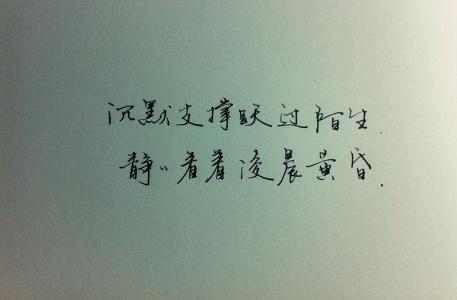 沉默支撑跃过陌生.
静〃看着凌晨黄昏.